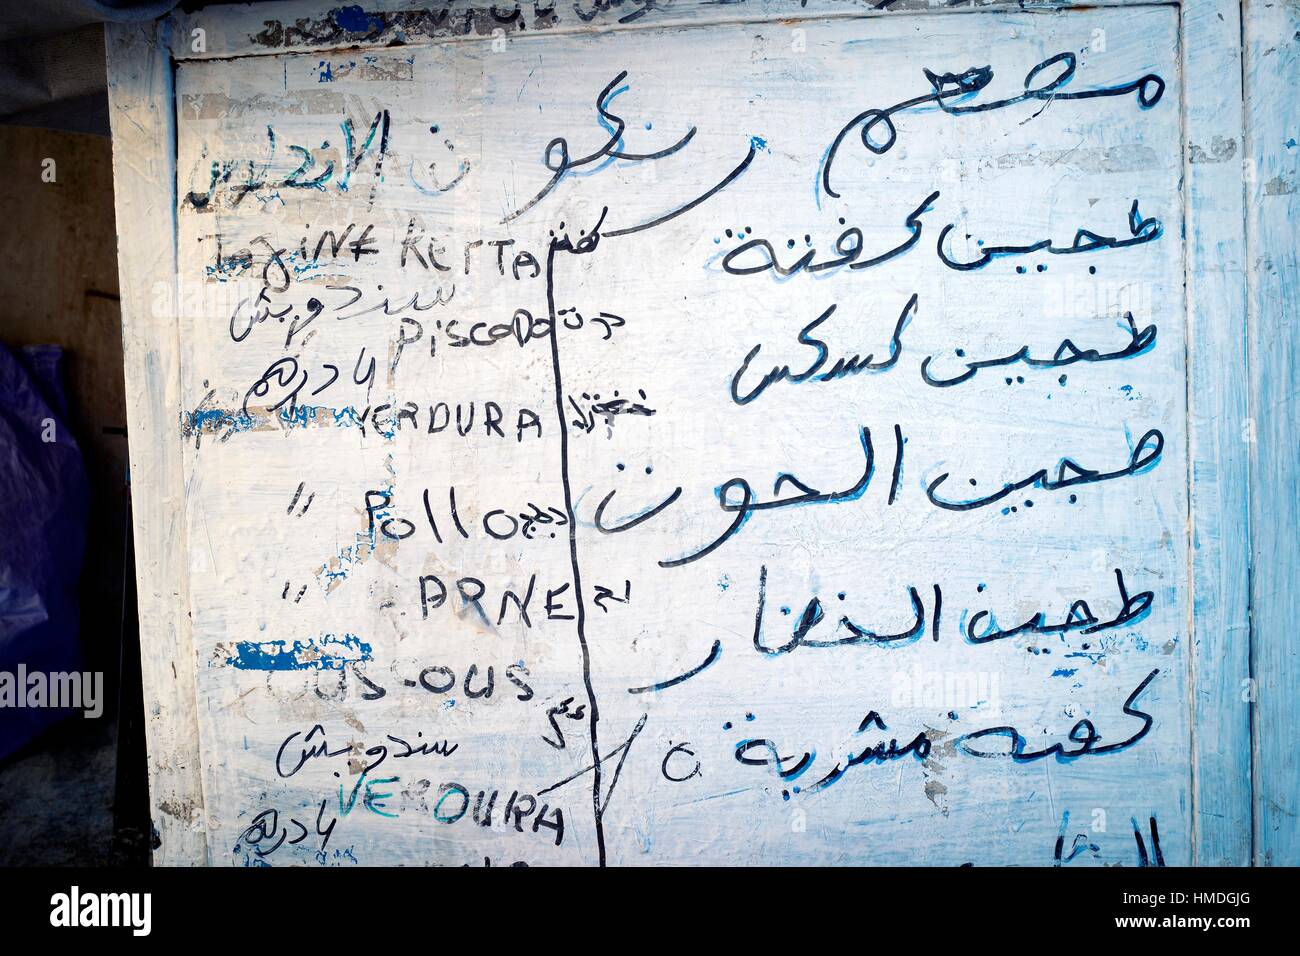 مطعم ركون الاندلس
طجين كفتة
طجين كسكس
طجين الحوت
طجين الخضار
كفتة مشوية
TagiNE KEFTA كفتة
سندويش PiscADO حوت
درهم VERDURA
" Pollo دجاج
" ARNE لحم
OUSCOUS
سندويش
VERDURA
درهم
alamy
Image ID: HMDGJG
www.alamy.com